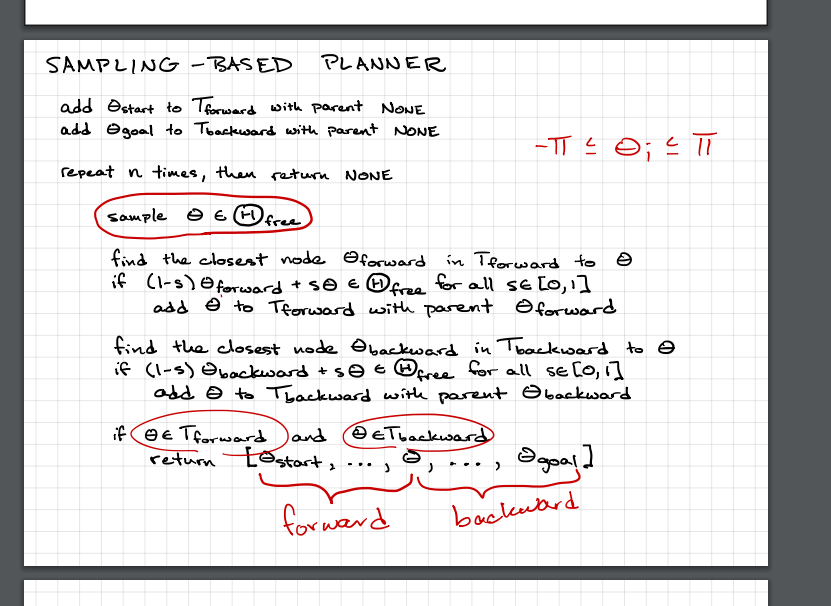 SAMPLING-BASED PLANNER
add θstart to Tforward with parent NONE
add θgoal to Tbackward with parent NONE
-π ≤ θi ≤ π
repeat n times, then return NONE
sample θ ∈ Ⓗfree
find the closest node θforward in Tforward to θ
if (1-s)θforward + sθ ∈ Ⓗfree for all s∈[0,1]
add θ to Tforward with parent θforward
find the closest node θbackward in Tbackward to θ
if (1-s)θbackward + sθ ∈ Ⓗfree for all s∈[0,1]
add θ to Tbackward with parent θbackward
if θ∈Tforward and θ∈Tbackward
return [θstart, ..., θ, ..., θgoal]
forward backward